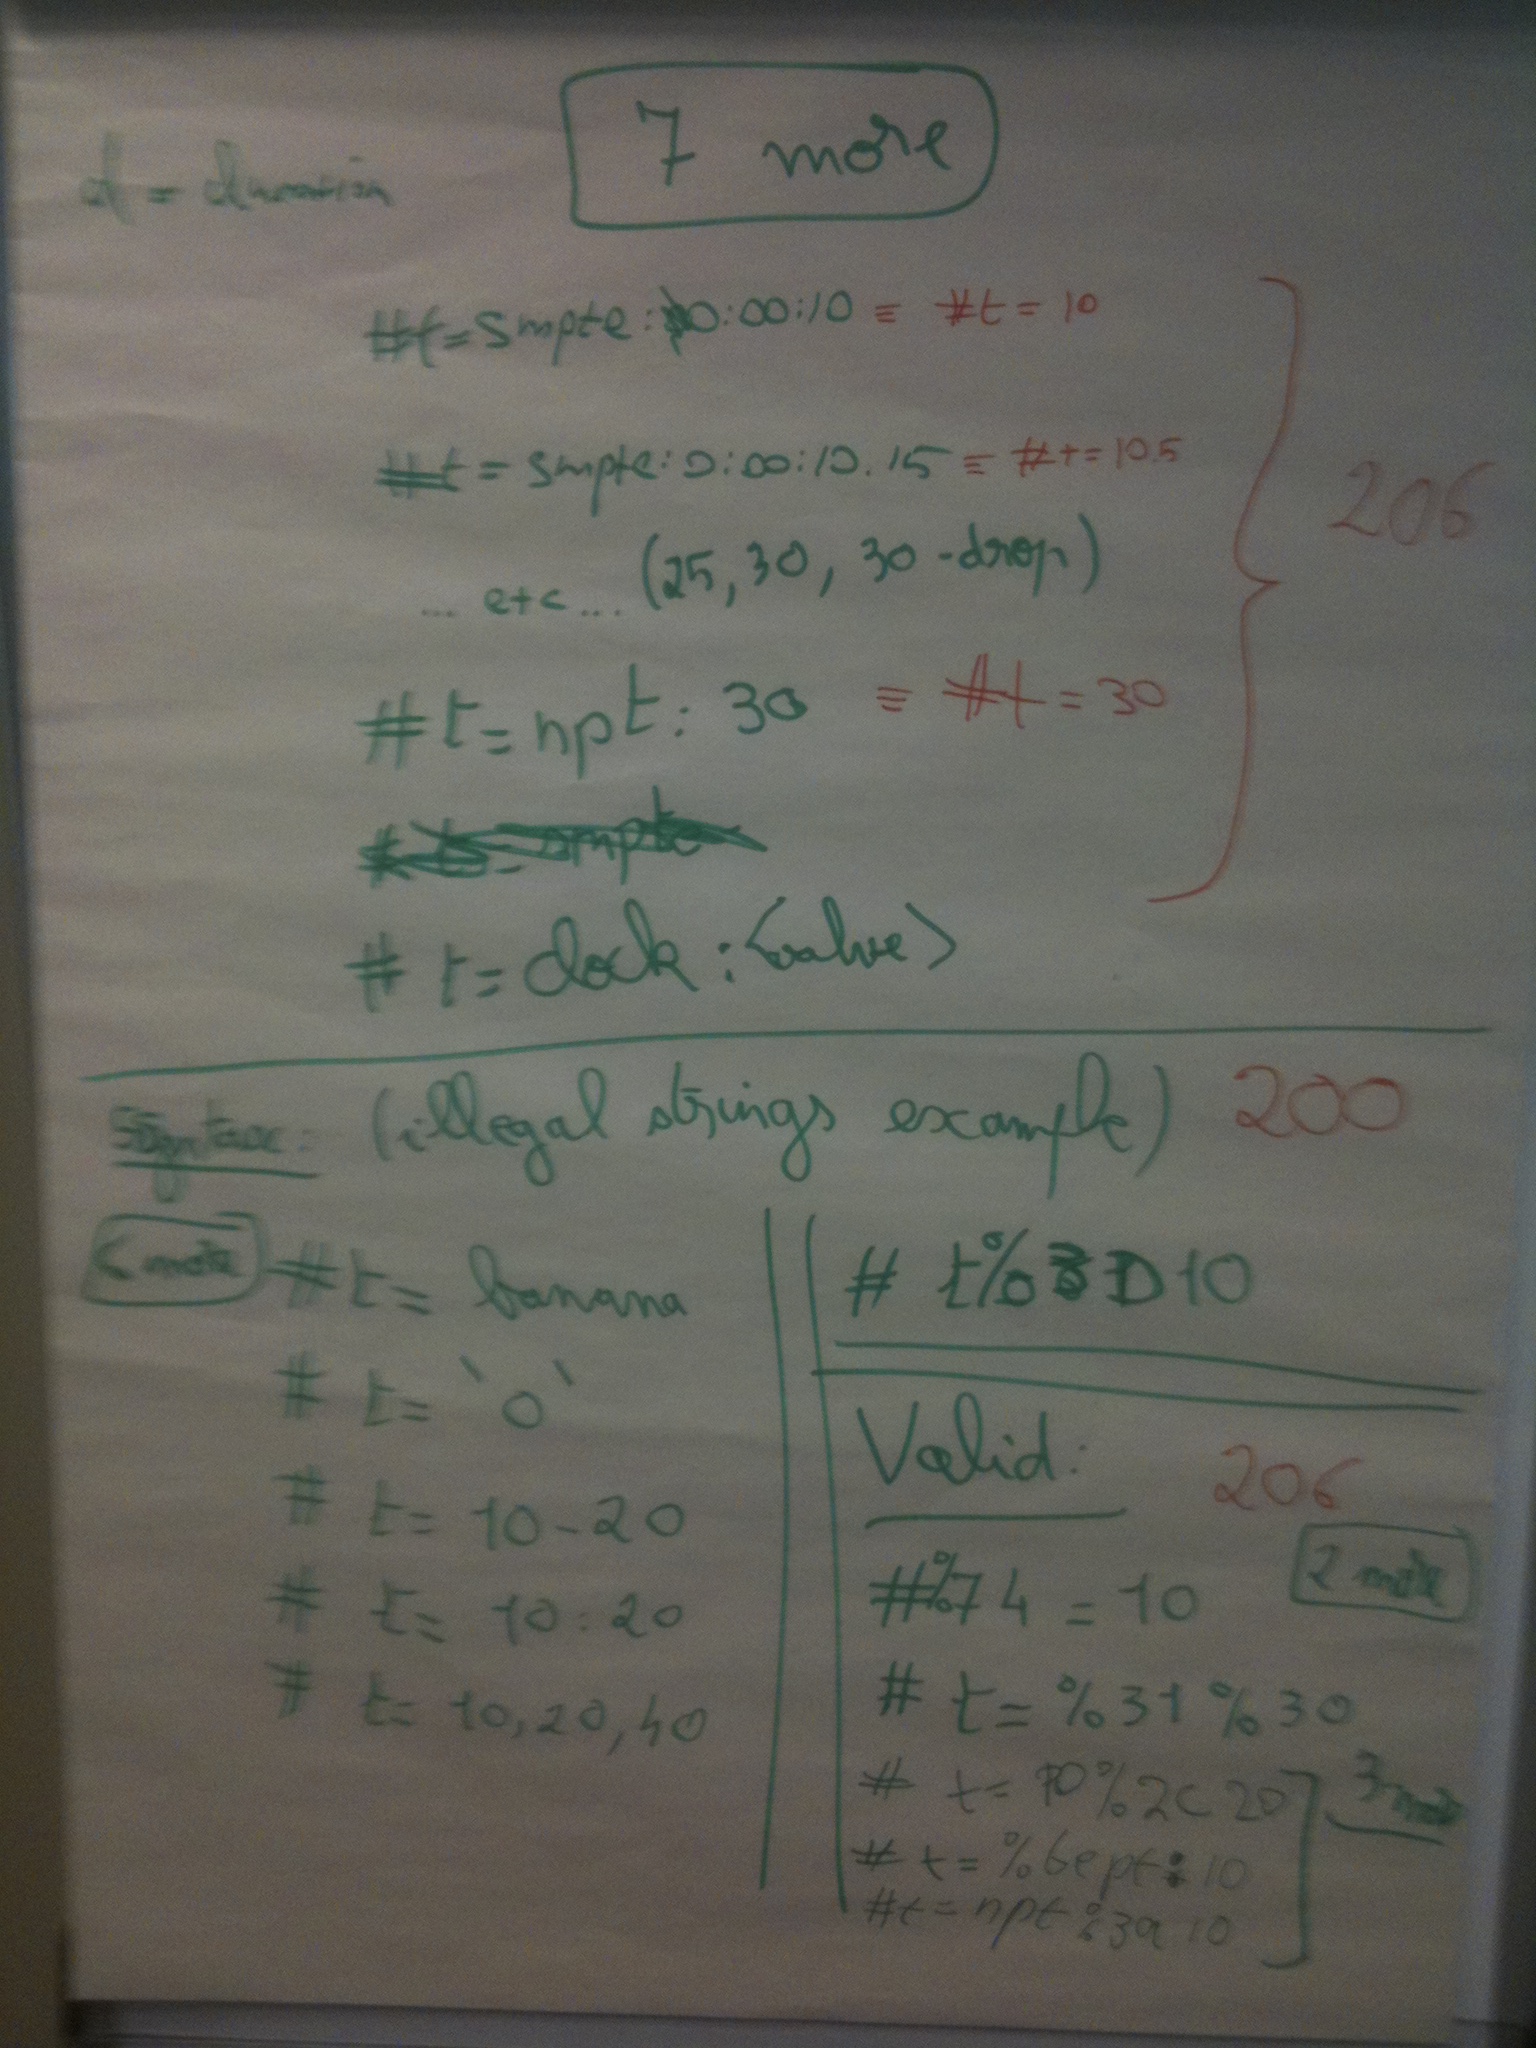 7 more
d = duration
#t=smpte:0:00:10 ≡ #t=10
#t=smpte:0:00:10.15 ≡ #t=10.5
206
... etc ... (25, 30, 30-drop)
#t=npt:30 ≡ #t=30
# t= smpte
# t=clock:<value>
Syntax: (illegal strings example) 200
#t= banana
# t= '0'
# t= 10-20
# t= 10:20
# t= 10,20,40
# t%3D10
Valid: 206
#%74=10
2 more
# t=%31%30
# t=10%2C20
3 more
# t=%6ept:10
#t=npt%3a10